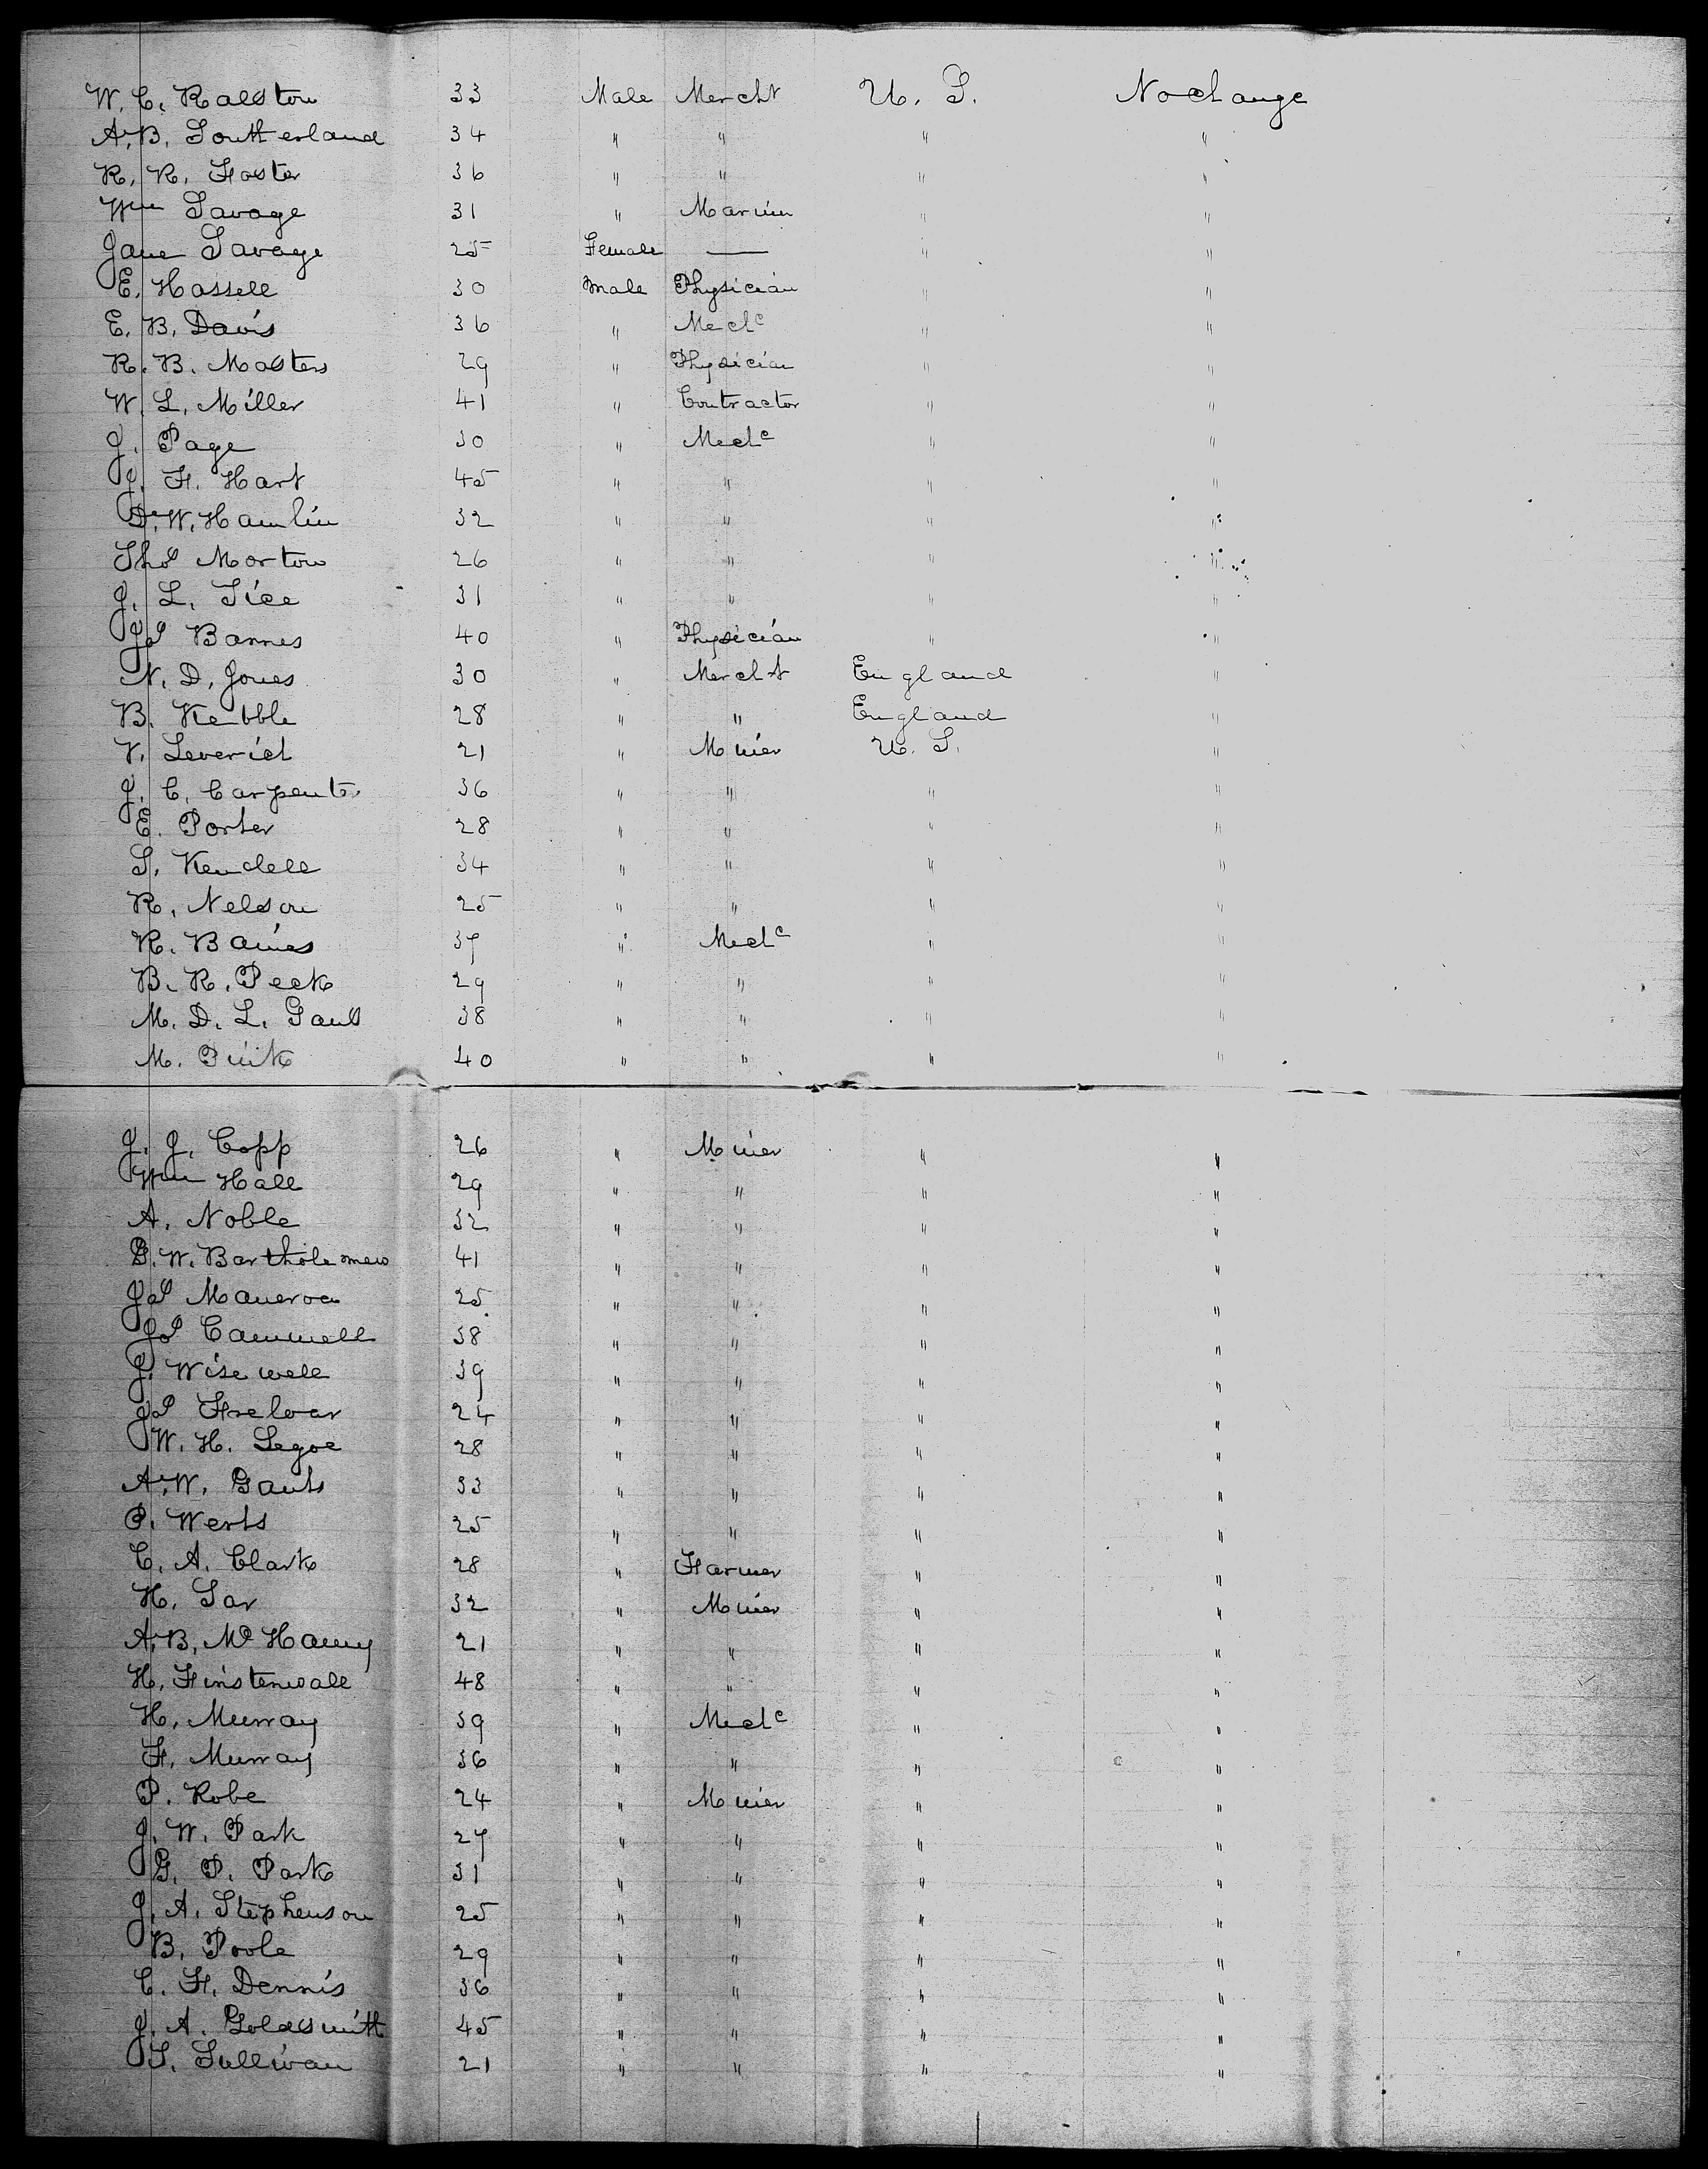 W. C. Ralston 33 Male Mercht U. S. No change
A. B. Southerland 34 " " " "
R. R. Foster 36 " " " "
Wm Savage 31 " Marin " "
Jane Savage 25 Female — " "
E. Hassell 30 Male Physician " "
E. B. Davis 36 " Mechc " "
R. B. Masters 29 " Physician " "
W. L. Miller 41 " Contractor " "
J. Page 30 " Mechc " "
J. F. Hart 45 " " " "
D. W. Hamlin 32 " " " "
Thos Morton 26 " " " "
J. L. Tice 31 " " " "
Jas Barnes 40 " Physician " "
N. D. Jones 30 " Mercht England "
B. Kebble 28 " " England "
V. Leverich 21 " Miner U. S. "
J. C. Carpenter 36 " " " "
E. Porter 28 " " " "
S. Kendell 34 " " " "
R. Nelson 25 " " " "
R. Baines 37 " Mechc " "
B. R. Peek 29 " " " "
M. D. L. Gault 38 " " " "
M. Pink 40 " " " "
J. J. Copp 26 " Miner " "
Wm Hall 29 " " " "
A. Noble 32 " " " "
G. W. Bartholemew 41 " " " "
Jas Maneroa 25 " " " "
Jos Cammell 38 " " " "
J. Wisewell 39 " " " "
Jas 24 " " " "
W. H. Segoe 28 " " " "
A. W. Gants 33 " " " "
P. Werts 25 " " " "
C. A. Clark 28 " Farmer " "
H. Sar 32 " Miner " "
A. B. Mc Hanny 21 " " " "
H. Finstenwall 48 " " " "
H. Murray 39 " Mechc " "
F. Murray 36 " " " "
P. Robe 24 " Miner " "
J. W. Park 27 " " " "
G. P. Park 31 " " " "
J. A. Stephenson 25 " " " "
B. Poole 29 " " " "
C. F. Dennis 36 " " " "
J. A. Goldsmith 45 " " " "
S. Sullivan 21 " " " "